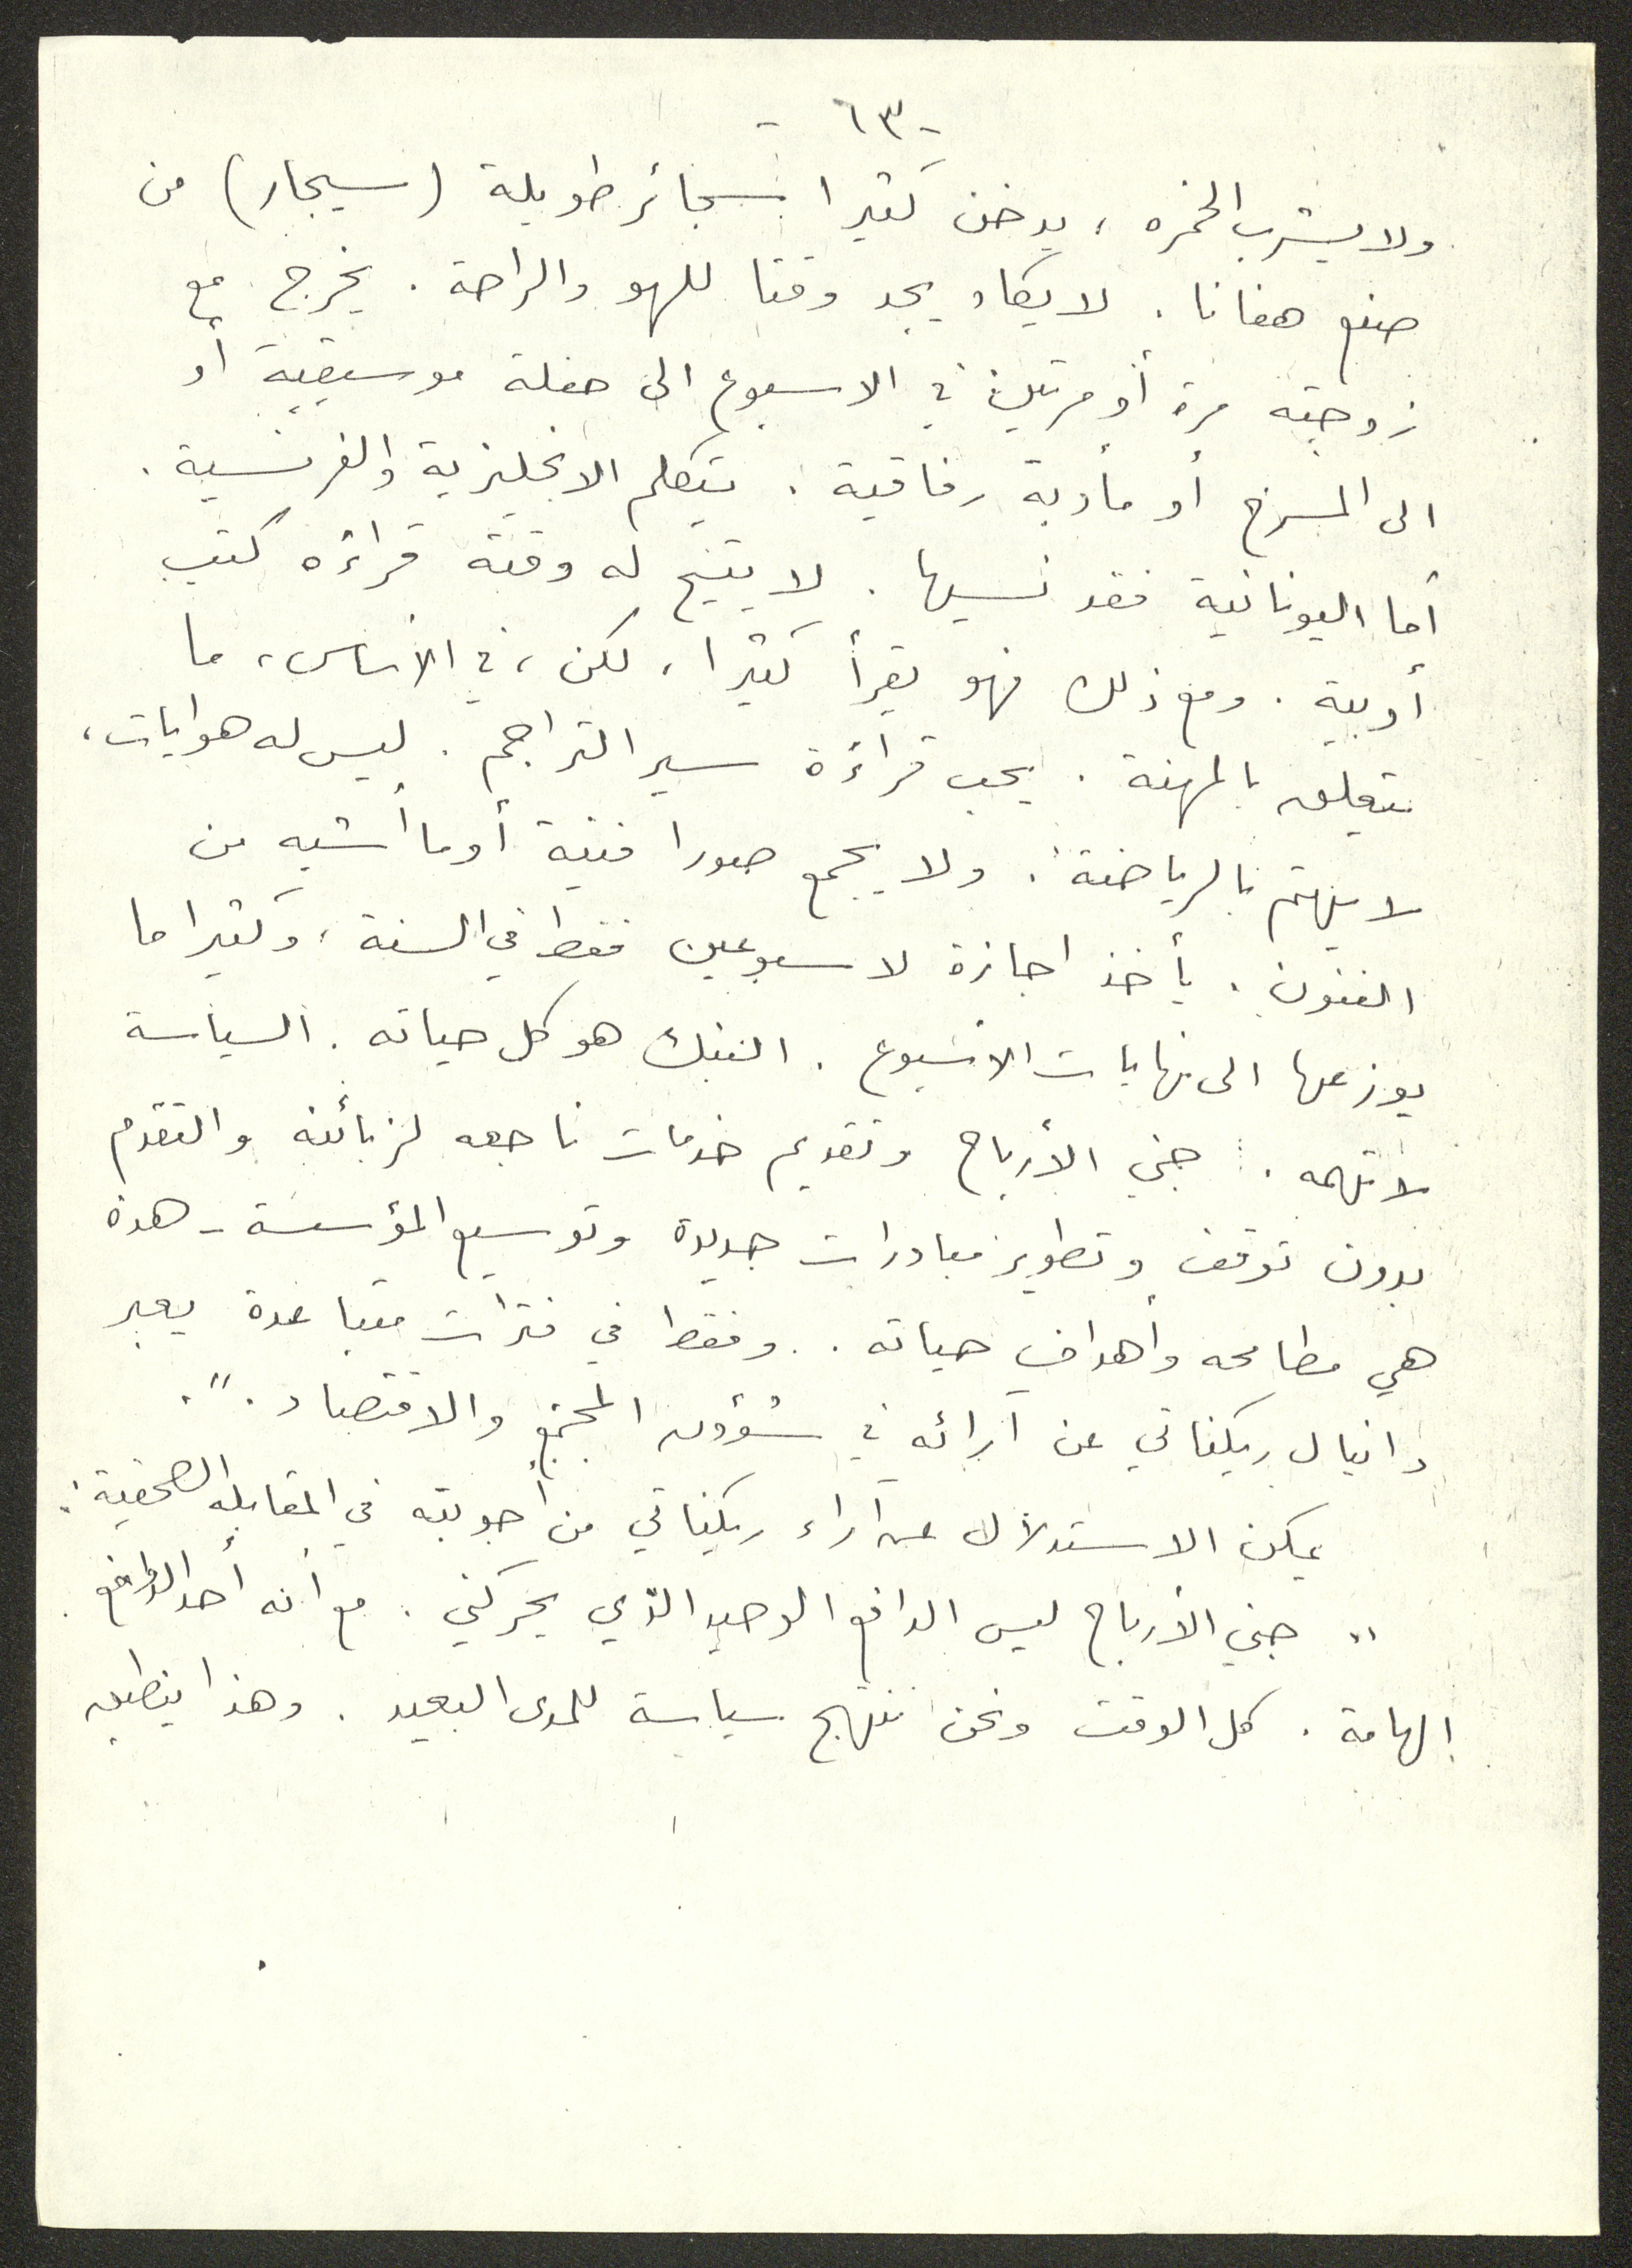 -٦٣-
ولا يشرب الخمره ، يدخن كثيرا سجائر طويلة (سيجار) من
صنع هفانا . لا يكاد يجد وقتا للهو والراحة . يخرج مع
زوجته مرة أو مرتين في الاسبوع الى حفلة موسيقية أو
الى المسرح أو مأدبة رفاقية . يتكلم الانجليزية والفرنسية .
أما اليونانية فقد نسيها . لا يتيح له وقته قراءه كتب
أدبية . ومع ذلك فهو يقرأ كثيرا ، لكن ، في الأساس ، ما
يتعلق بالمهنة . يحب قراءة سير التراجم . ليس له هوايات ،
لا يهتم بالرياضة . ولا يجمع صورا فنية أو ما أشبه من
الفنون . يأخذ اجازة لاسبوعين فقط في السنة ، وكثيرا ما
يوزعها الى نهايات الأسبوع . البنك هو كل حياته . السياسة
لا تهمه . جني الأرباح وتقديم خدمات ناجعه لزبائنه والتقدم
بدون توقف وتطوير مبادرات جديدة وتوسيع المؤسسة - هذه
هي مطامحه وأهداف حياته . وفقط في فترات متباعدة يعبر
دانيال ريكناتي عن آرائه في شؤون المجتمع والاقتصاد . " .
يمكن الاستدلال عن آراء ريكيناتي من أجوبته في المقابله الصحفية :
" جني الأرباح ليس الدافع الوحيد الذي يحركني . مع أنه أحد الدوافع
الهامة . كل الوقت ونحن ننتهج سياسة للمدى البعيد . وهذا ينطبق